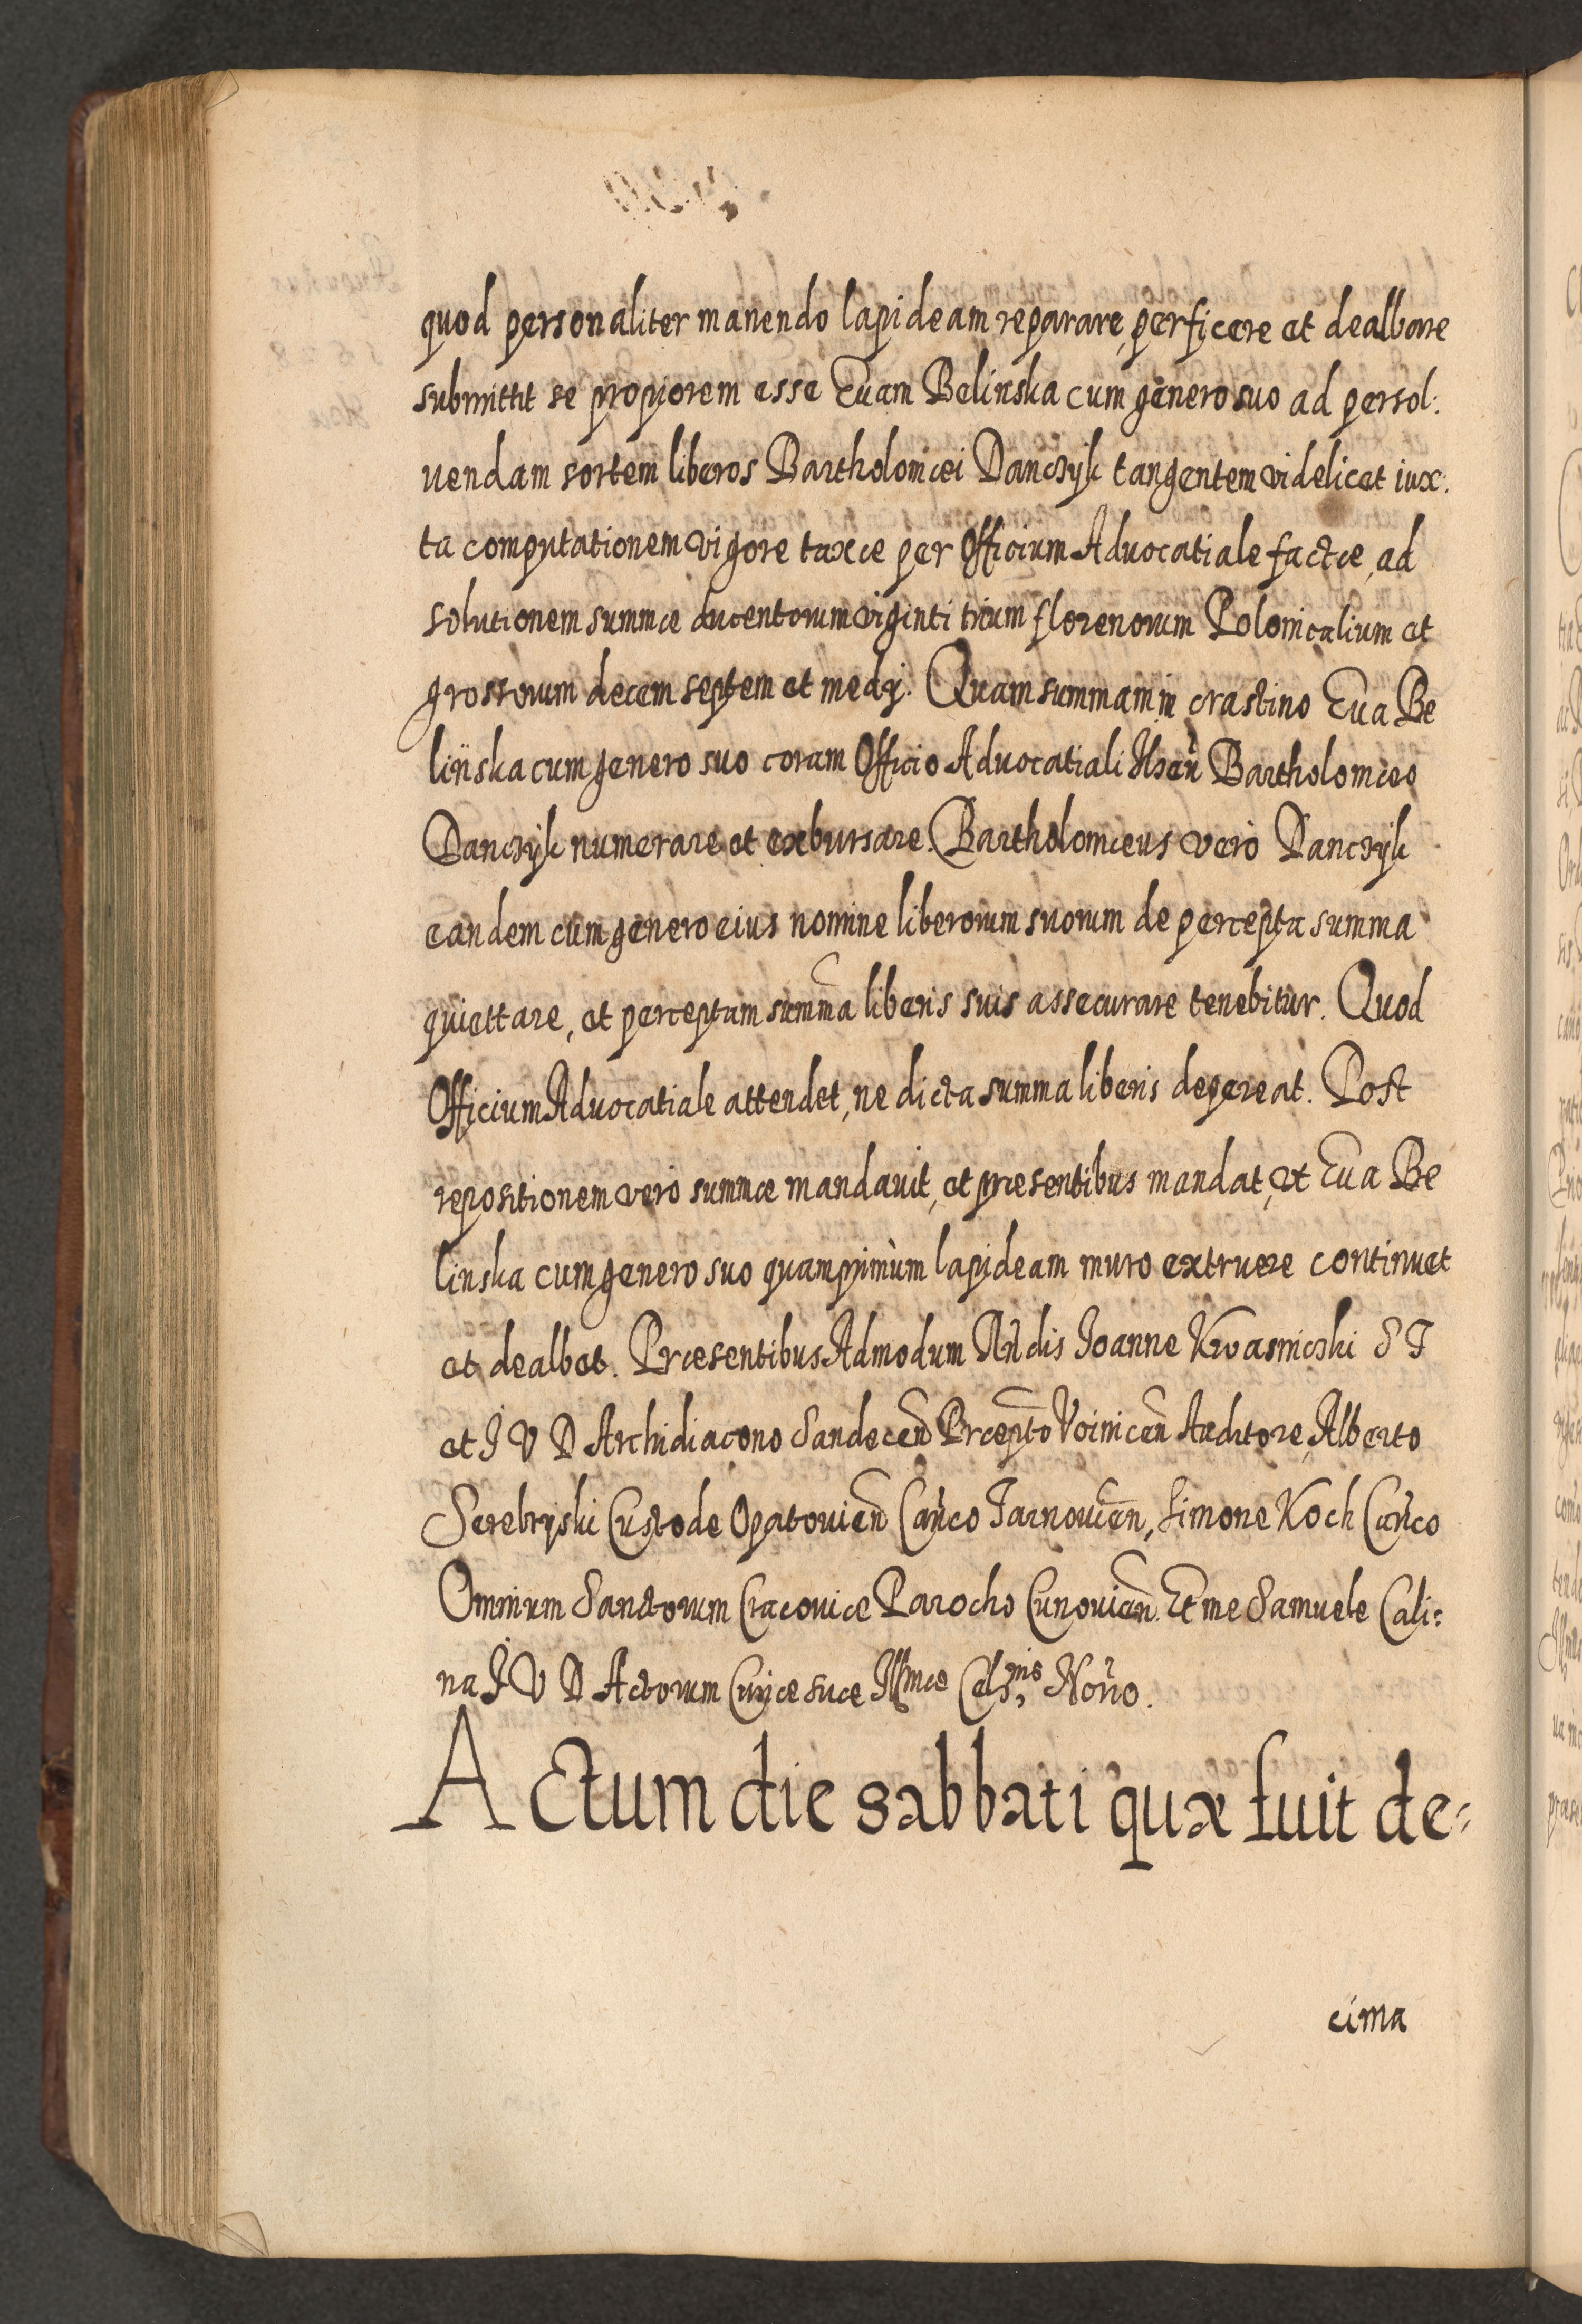 quod personaliter manendo lapideam reparare, perficere et dealbare
submittit se propiorem esse Euam Belinska cum genero suo ad persol:
uendam sortem liberos Bartholomæi Danczyk tangentem videlicet iux:
ta computationem vigore taxæ per Officium Advocatiale factæ, ad
solutionem summæ ducentorum viginti trium florenorum Polonicalium et
grossorum decem septem et medÿ. Quam summam in crastino Eua Be
linska cum genero suo coram Officio Advocatiali Bartholomæo
Danczyk numerare et exbursare. Bartholomæus verò Danczyk
eandem cum genero eius nomine liberorum suorum de percepta summa
quiettare, et perceptam summā liberis suis assecurare tenebitur. Quod
Officium Advocatiale attendet, ne dicta summa liberis depereat. Post
repositionem verò summæ mandauit, et præsentibus mandat, vt Eua Be
linska cum genero suo quamprimùm lapideam muro extruere continuet
et dealbet. Præsentibus Admodum Rñdis Joanne Kwasniczki S T
et J V D Archidiacono Sandeceñ Præpto Voiniceñ Auditore, Alberto
Serebryski Custode Opatovieñ Cañco Tarnovieñ, Simone Koch Cañco
Omnium Sanctorum Cracoviæ Parocho Cunovieñ. Et me Samuele Cali:
na J V D Actorum Curiæ suæ Illmæ Cels,nis Noȓio.
Actum die sabbati quæ fuit de:
cima